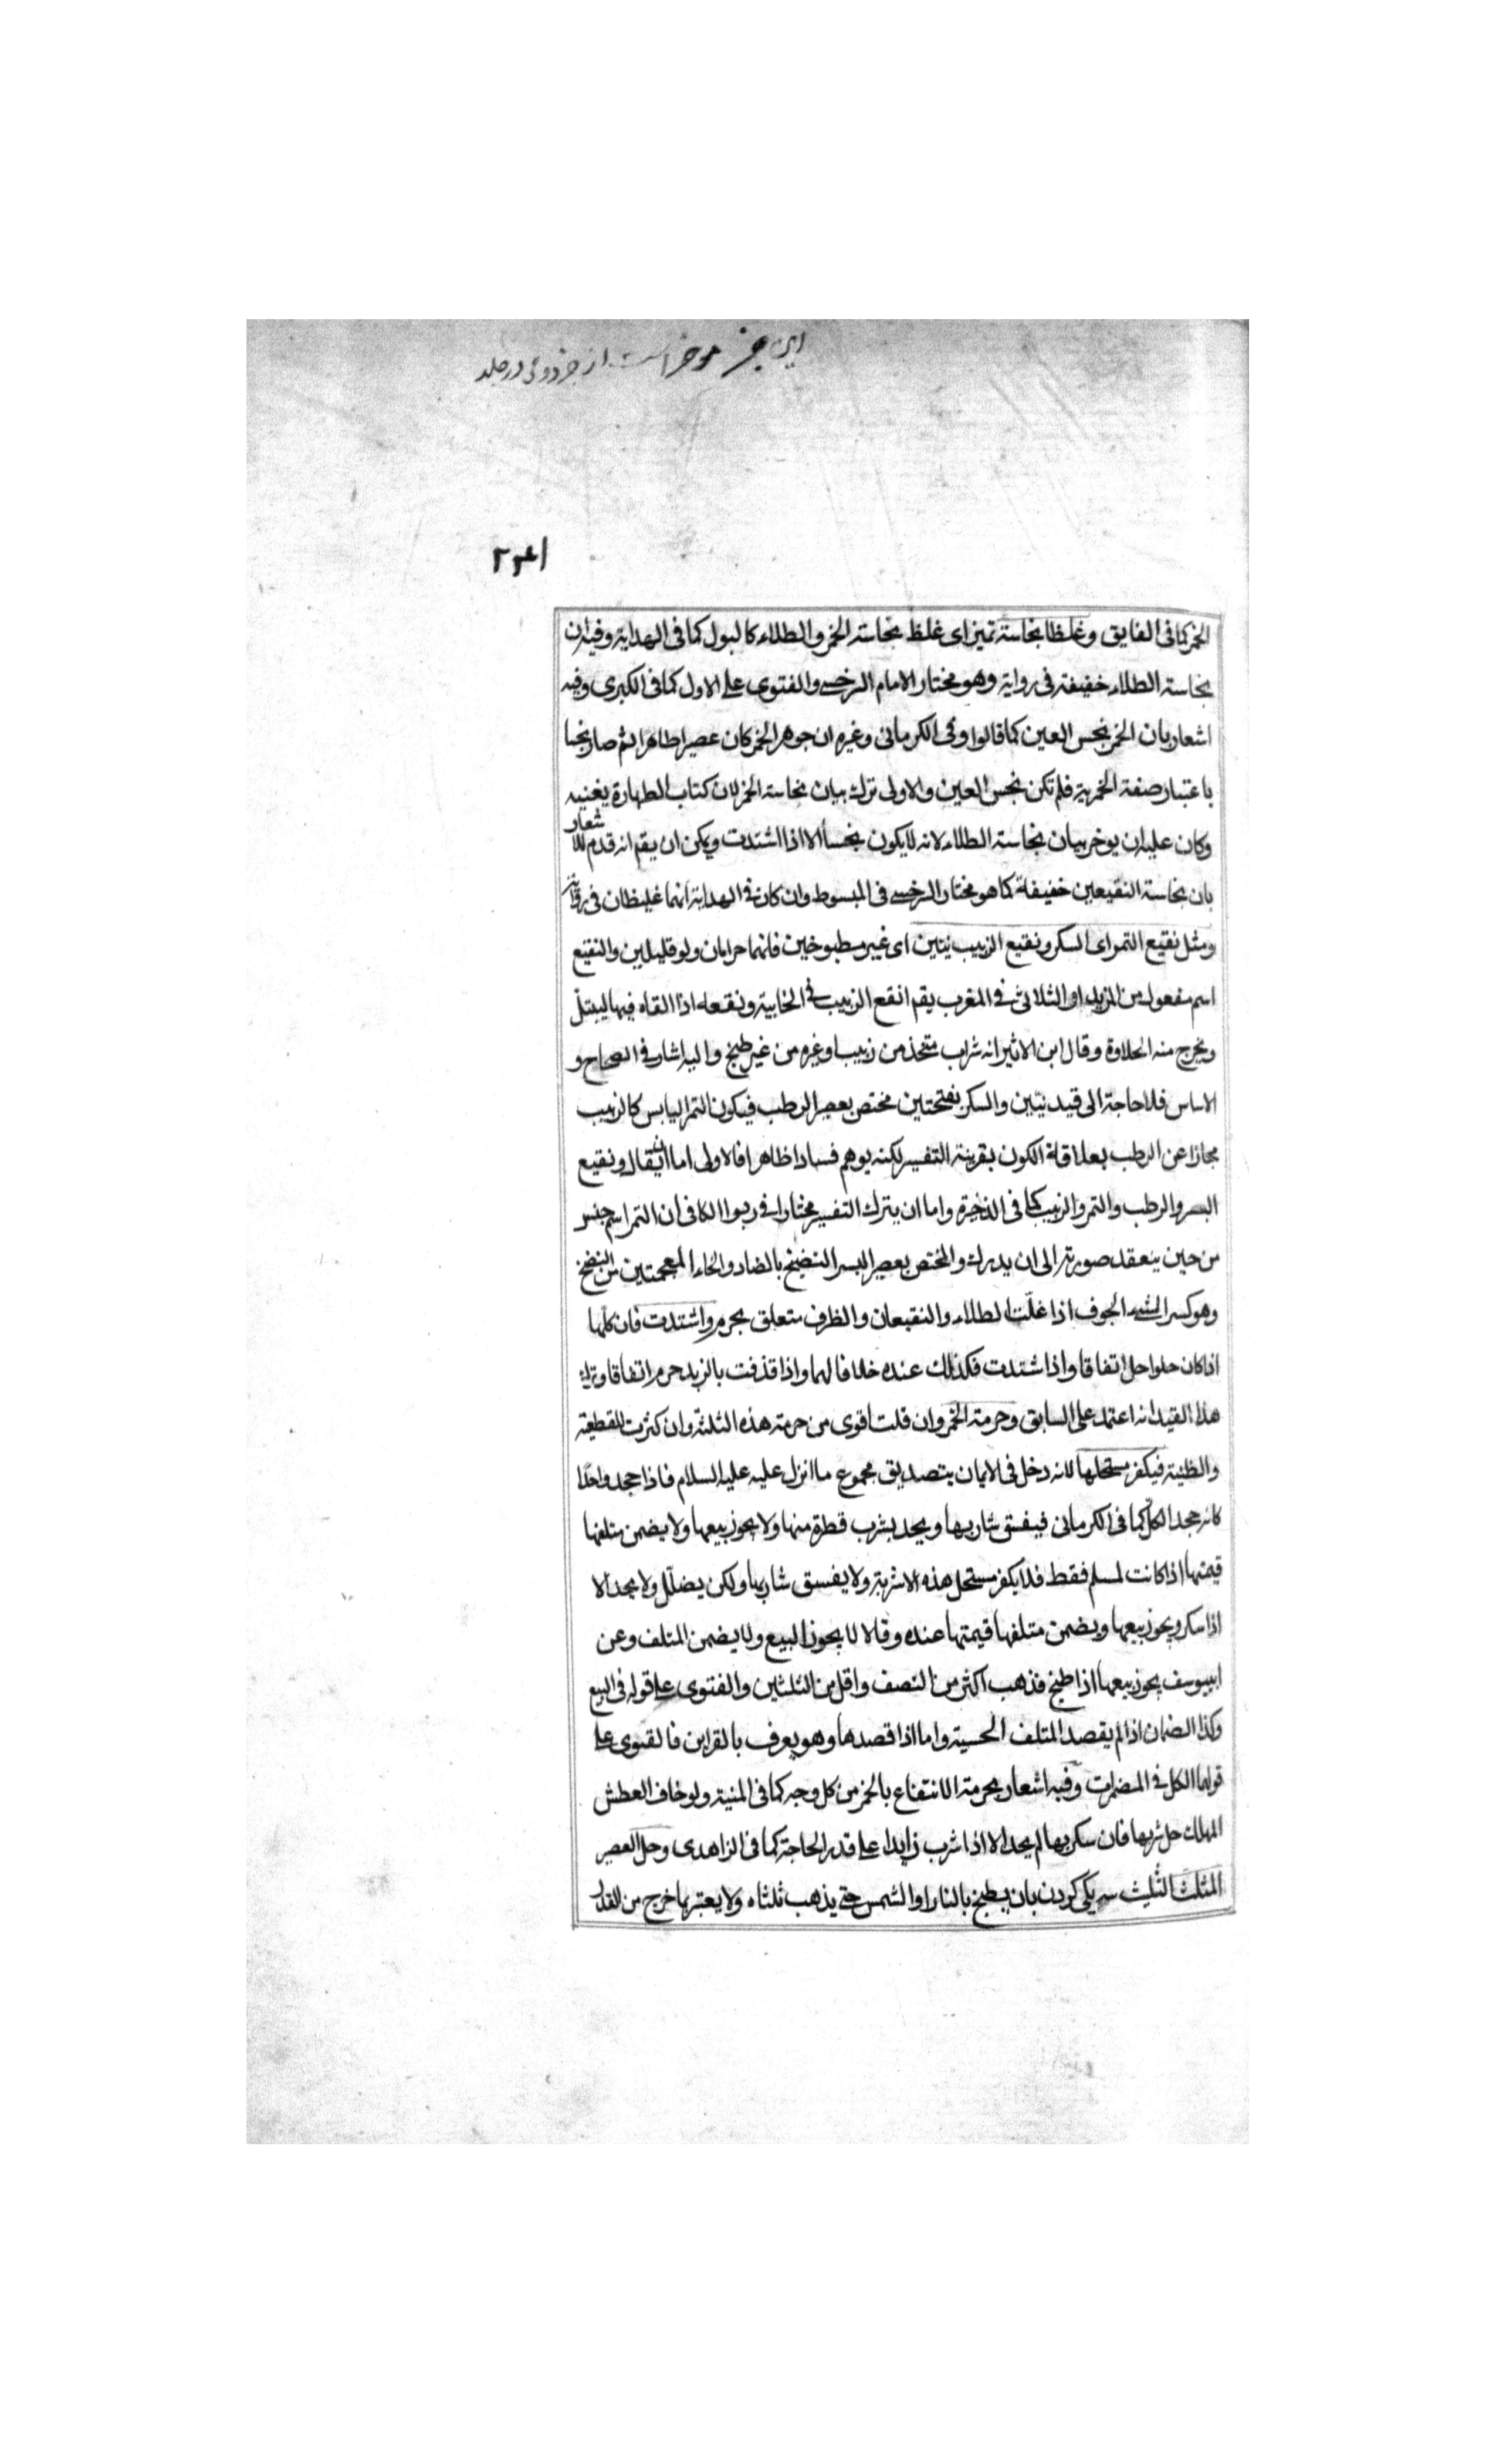 این جزء موخر است از جزء دوئی در جلد
الخمر كما فى الفايق وغلظا نجاسة تميز اى غلظ نجاسة الخمر والطلاء كالبول كما فى الهداية وفيه ان
نجاسة الطلاء خفيفة فى رواية وهو مختار الامام السرخسى والفتوى على الاول كما فى الكبرى وفيه
اشعار بان الخمر نجس العين كما قالوا وفى الكرمانى وغيره ان جوهر الخمر كان عصيرا طاهرا ثم صار نجسا
باعتبار صفة الخمرية فلم تكن نجس العين والاولى ترك بيان نجاسة الخمر لان كتاب الطهارة يغنيه
وكان عليه ان يوخر بيان نجاسة الطلاء لانه لا يكون نجسا الا اذا اشتدت ويمكن ان يقم انه قدم للاشعار
بان نجاسة النقيعين خفيفة كما هو مختار السرخسى فى المبسوط وان كان فى الهداية انهما غليظان فى رواية
ومثل نقيع التمر اى السكر ونقيع الزبيب نيئين اى غير مطبوخين فانهما حرامان ولو قليلين والنقيع
اسم مفعول من المزيد او الثلاثى فى المغرب يقم انقع الزبيب فى الخابية ونقعه اذا القاه فيها ليبتل
ويخرج منه الحلاوة وقال ابن الاثير انه شراب متخذ من زبيب وغيره من غير طبخ واليه اشار فى الصحاح و
الاساس فلا حاجة الى قيد نيئين والسكر بفتحتين مختص بعصير الرطب فيكون التمر اليابس كالزبيب
مجازا عن الرطب بعلاقة الكون بقرينة التفسير لكنه يوهم فسادا ظاهرا فالاولى اما ان يقال ونقيع
البسر والرطب والتمر والزبيب كما فى الذخيرة واما ان يترك التفسير مختارا فى ربوا الكافى ان التمر اسم جنس
من حين ينعقد صورته الى ان يدرك والمختص بعصير البسر النضيخ بالضاد والخاء المعجمتين من النضخ
وهو كسر الشىء الجوف اذا غلت الطلاء والنقيعان والظرف متعلق بحرم واشتدت فان كلها
اذا كان حلوا حل اتفاقا واذا اشتدت فكذلك عنده خلافا لهما واذا قذفت بالزبد حرم اتفاقا وترك
هذا القيد انه اعتمد على السابق وحرمة الخمر وان قلت اقوى من حرمة هذه الثلثة وان كثرت للقطعية
والظنية فيكفر مستحلها لانه دخل فى الايمان بتصديق مجموع ما انزل عليه عليه السلام فاذا جحد واحدا
كانه جحد الكل كما فى الكرمانى فيفسق شاربها ويحد بشرب قطرة منها ولا يجوز بيعها ولا يضمن متلفها
قيمتها اذا كانت لمسلم فقط فلا يكفر مستحل هذه الاشربة ولا يفسق شاربها ولكن يضلل ولا يحد الا
اذا سكر ويجوز بيعها ويضمن متلفها قيمتها عنده وقالا لا يجوز البيع ولا يضمن المتلف وعن
ابىيوسف يجوز بيعها اذا طبخ فذهب اكثر من النصف واقل من الثلثين والفتوى على قوله فى البيع
وكذا الضمان اذا لم يقصد المتلف الحسبة واما اذا قصدها وهو يعرف بالقراين فالفتوى على
قولهما الكل فى المضمرات وفيه اشعار بحرمة الانتفاع بالخمر من كل وجه كما فى المنية ولو خاف العطش
المهلك حل شربها فان سكر بها لم يحد الا اذا شرب زايدا على قدر الحاجة كما فى الزاهدى وحل العصير
المثلث الثليث سه يكى كردن بان يطبخ بالنار او الشمس حتى يذهب ثلثاه ولا يعتبر بما خرج من القدر